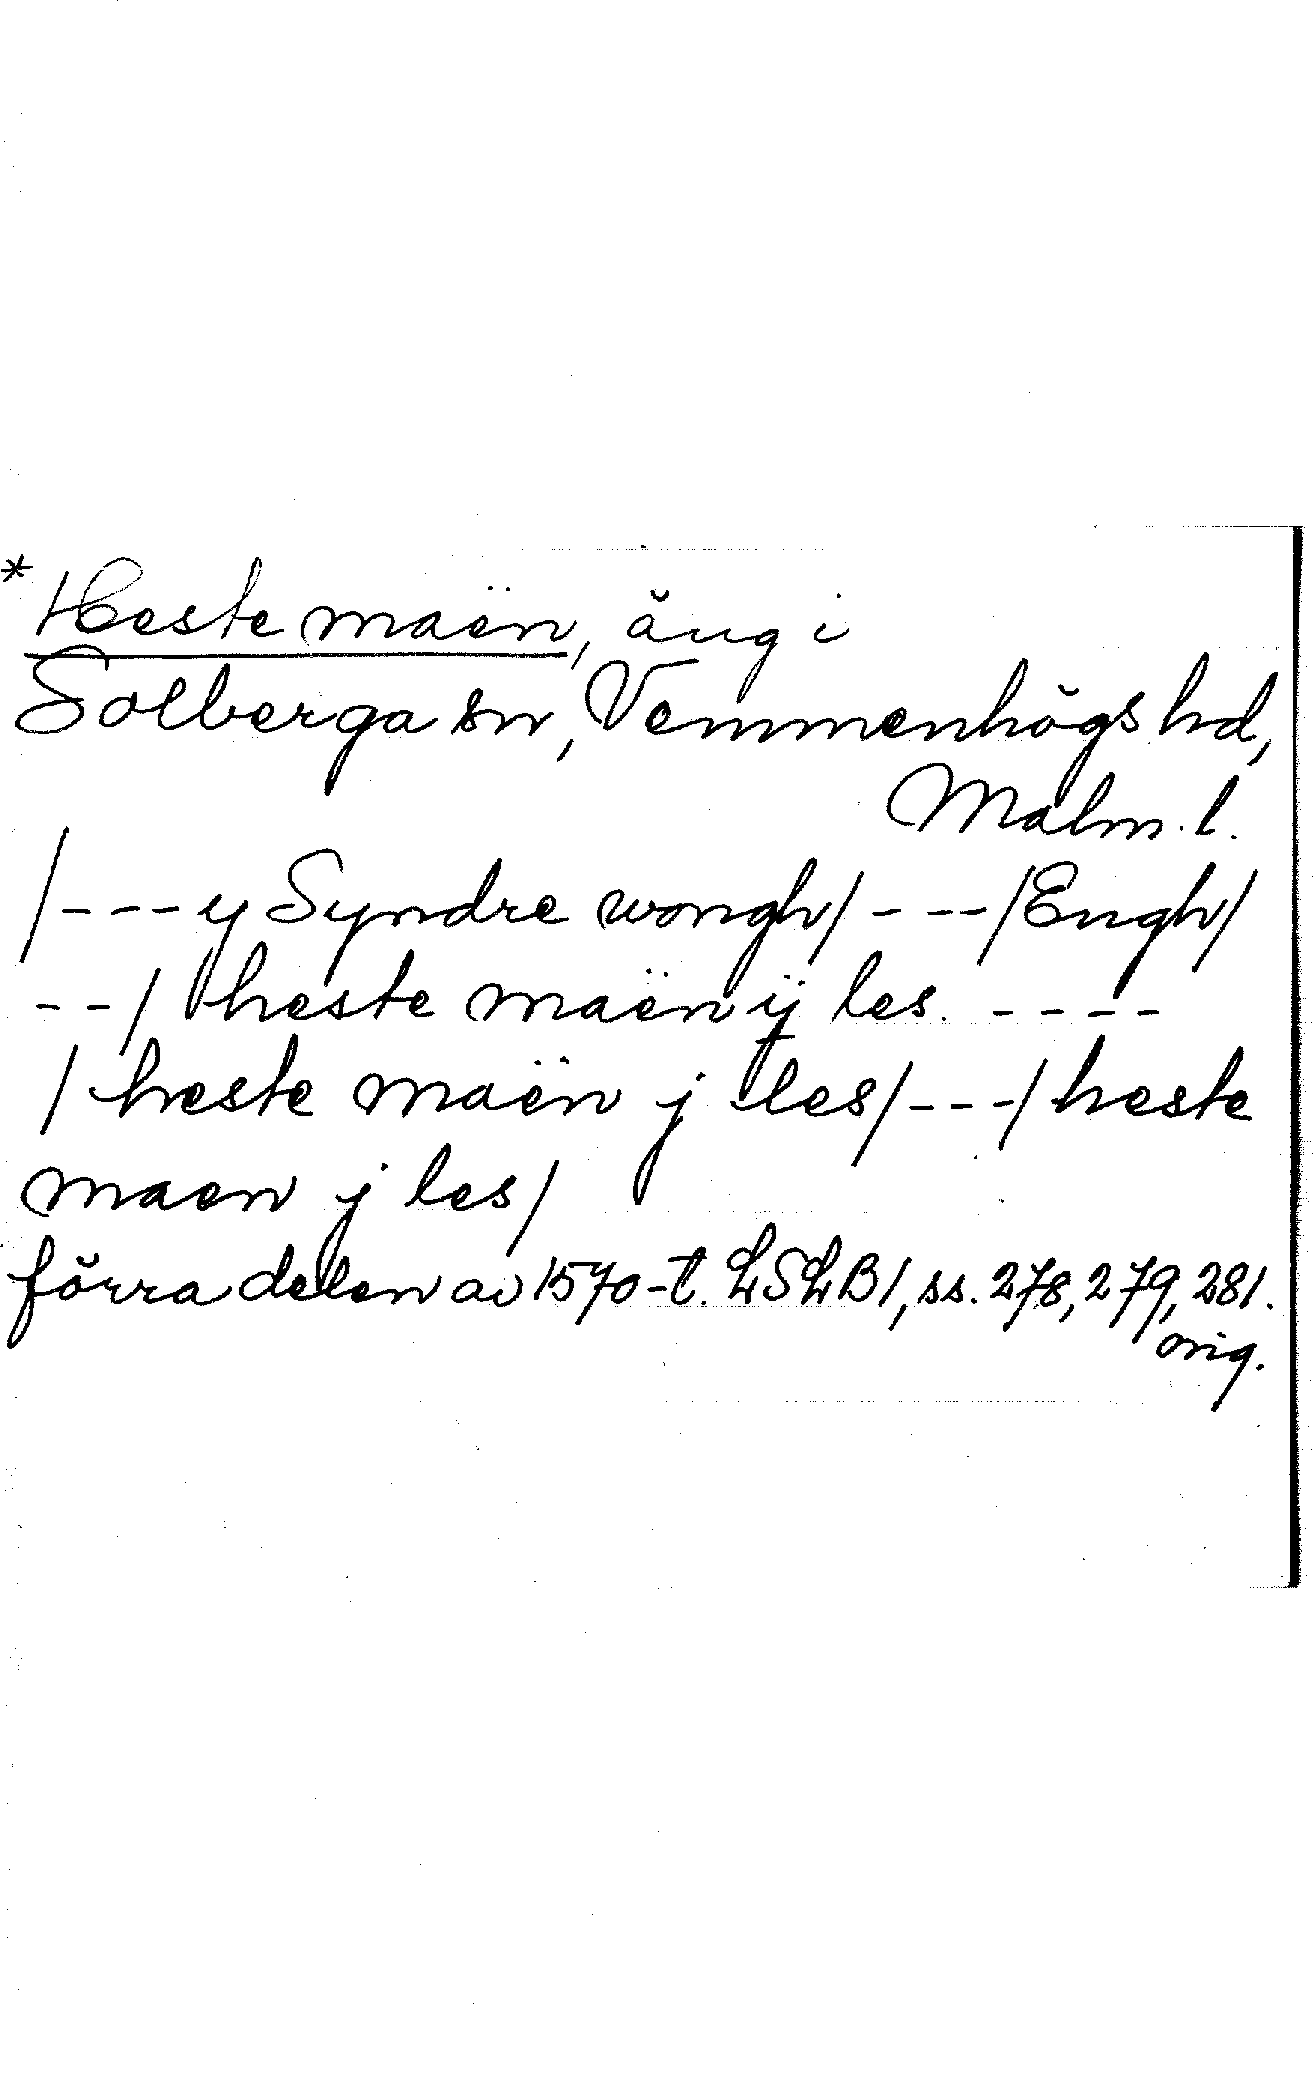 *Heste maën, äng i
Solberga sn, Vemmenhögs hd,
Malm. l.
/---y Syndre wongh/---/Engh/
--/ heste maën ij les.----
/heste maën j les/---/heste
maen j les/
förra delen av 1570-t. LSLB1, ss. 278, 279, 281.
orig.